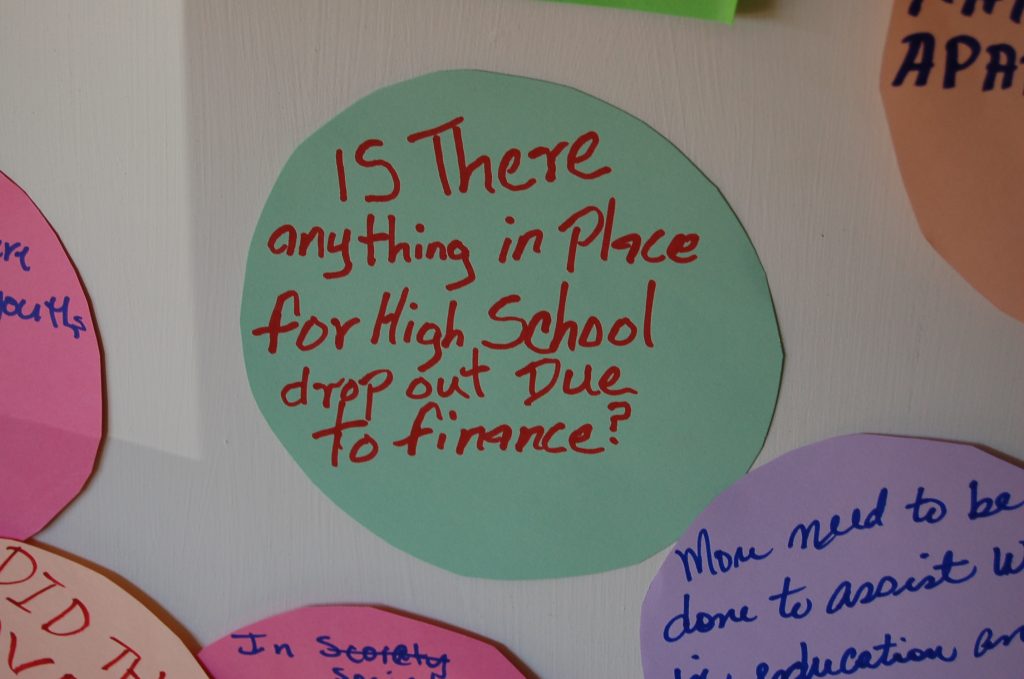 IS There
anything in Place
for High School
drop out Due
to finance?
APA
youths
More need to be
done to assist
education an
DID TH
In Scorety